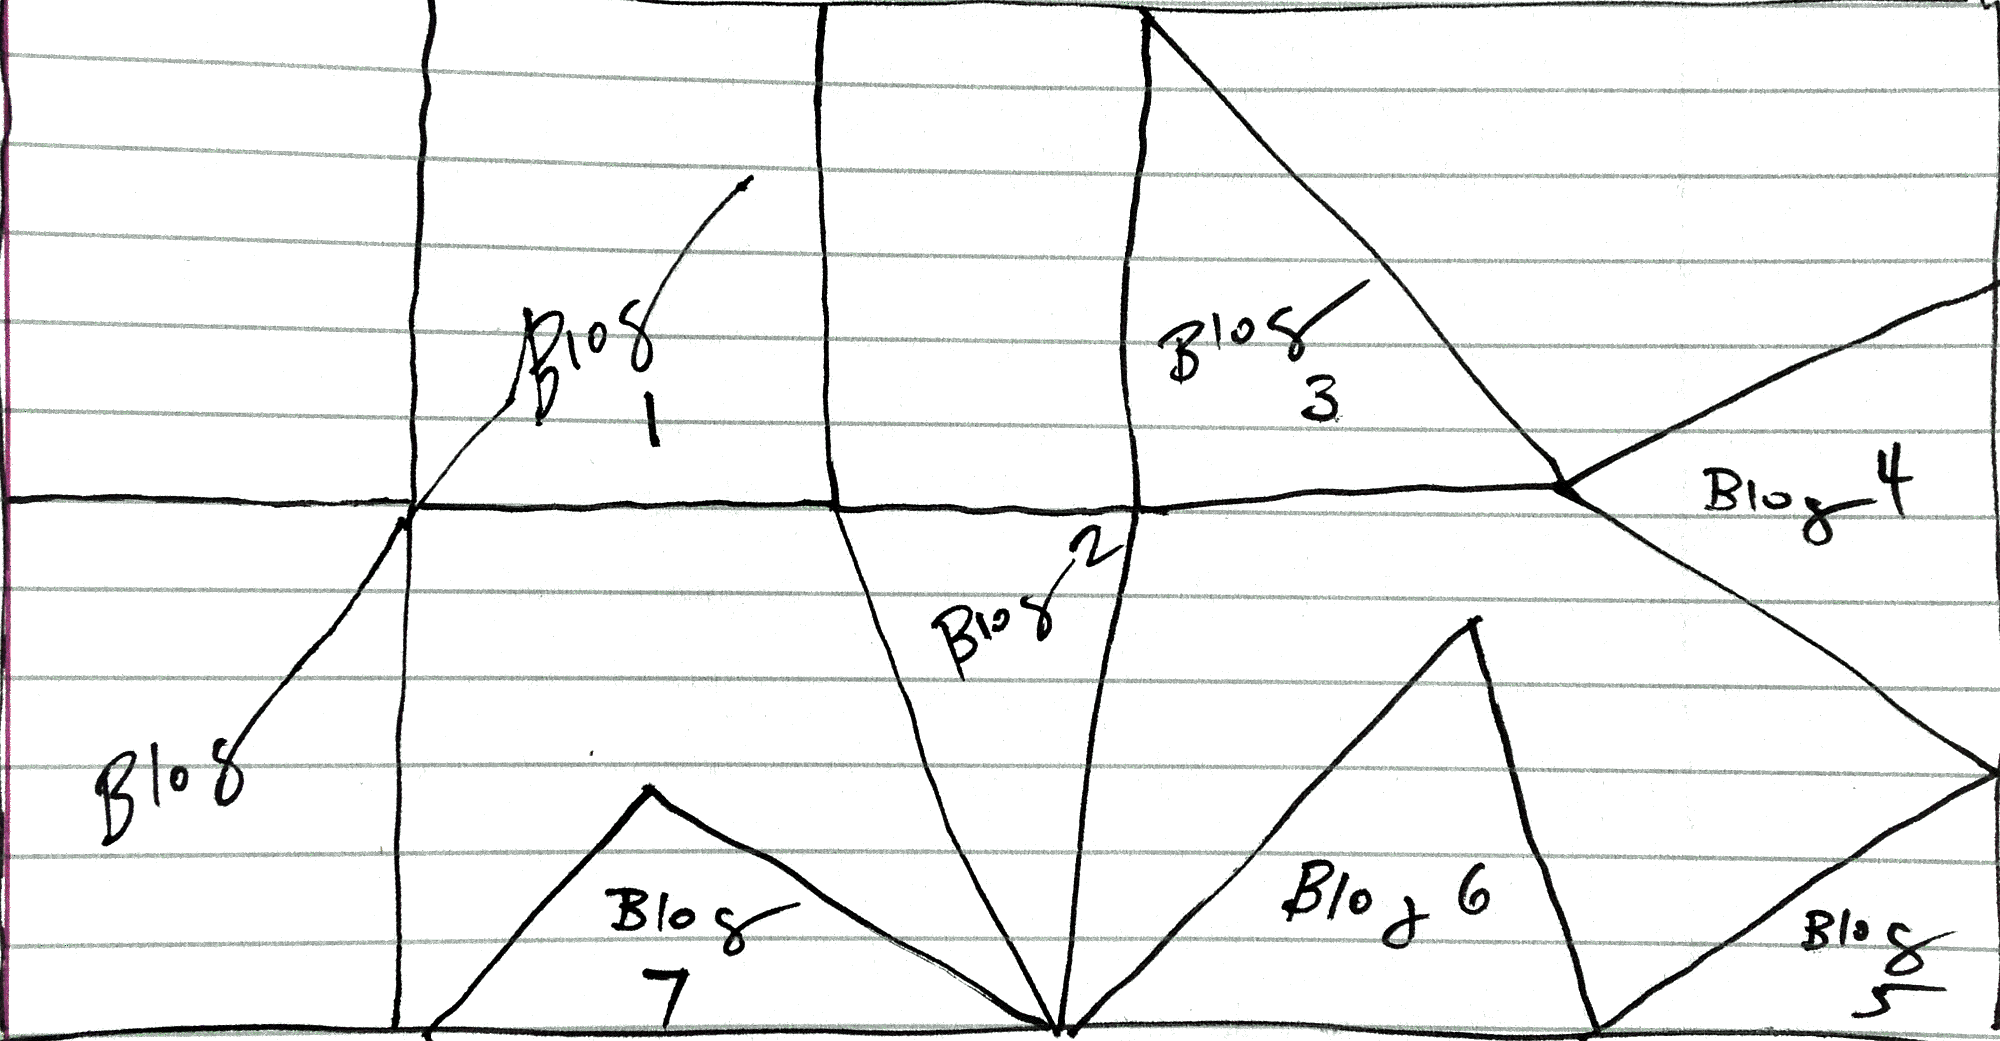 Blog
1
Blog
3
Blog 4
Blog 2
Blog
Blog
7
Blog 6
Blog
5